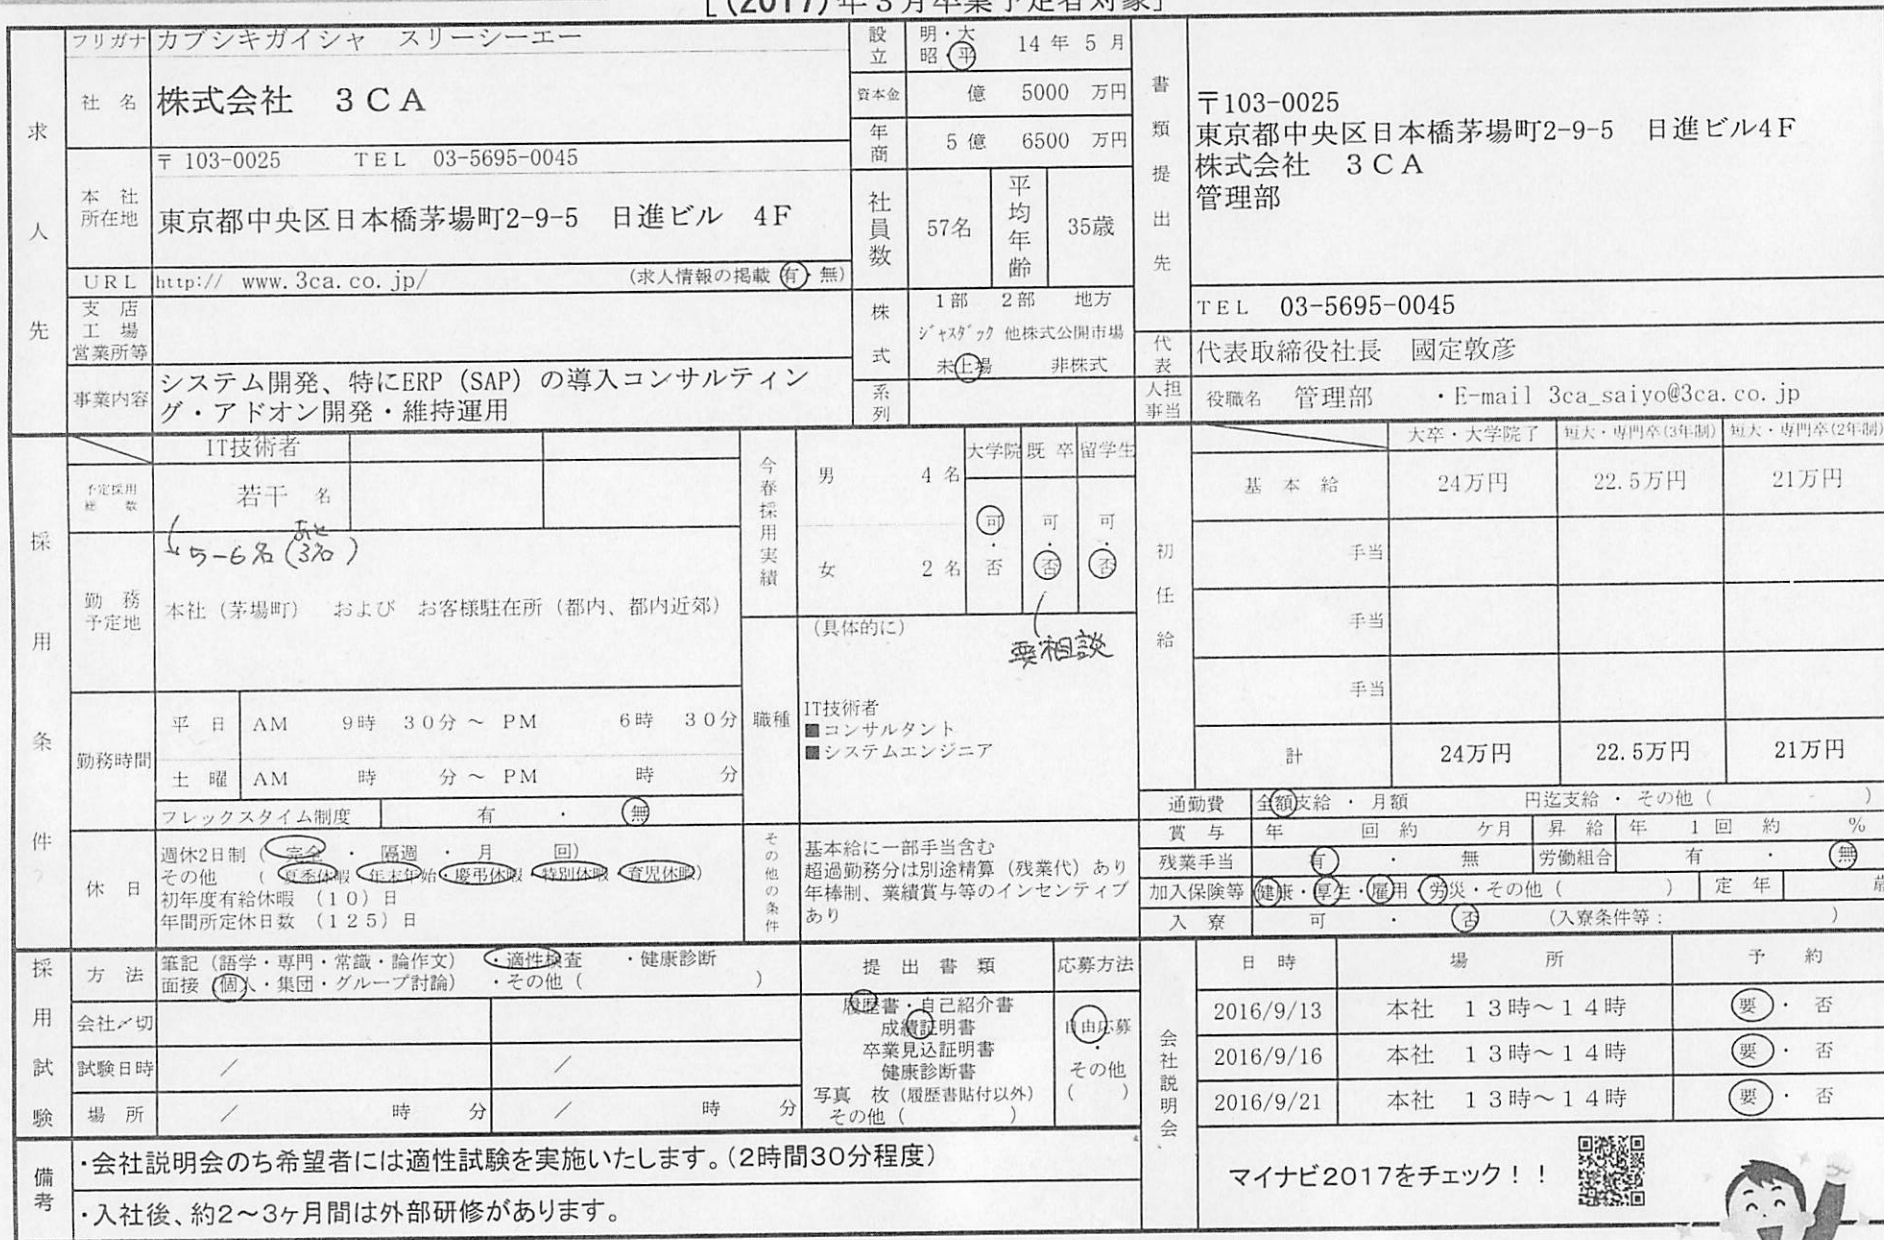 [(2017)年3月卒業予定者対象]
求人先
フリガナ カブシキガイシャ　スリーシーエー
社名 株式会社　3CA
本社所在地 〒103-0025 TEL 03-5695-0045
東京都中央区日本橋茅場町2-9-5　日進ビル　4F
URL http:// www.3ca.co.jp/ (求人情報の掲載 有・無)
支店工場営業所等
事業内容 システム開発、特にERP（SAP）の導入コンサルティン
グ・アドオン開発・維持運用
設立 明・大 昭・平 14年 5月
資本金 億 5000 万円
年商 5億 6500 万円
社員数 57名 平均年齢 35歳
株式 1部 2部 地方
ジャスダック 他株式公開市場
未上場 非株式
系列
書類提出先
〒103-0025
東京都中央区日本橋茅場町2-9-5　日進ビル4F
株式会社　3CA
管理部
TEL 03-5695-0045
代表 代表取締役社長　國定敦彦
人事担当 役職名 管理部 ・E-mail 3ca_saiyo@3ca.co.jp
採用条件
IT技術者
予定採用総数 若干 名
5-6名(あと3名)
勤務予定地 本社（茅場町）　および　お客様駐在所（都内、都内近郊）
勤務時間 平日 AM 9時 30分 ～ PM 6時 30分
土曜 AM 時 分 ～ PM 時 分
フレックスタイム制度 有 ・ 無
休日 週休2日制（完全・隔週・月 回）
その他（夏季休暇・年末年始・慶弔休暇・特別休暇・育児休暇）
初年度有給休暇（10）日
年間所定休日数（125）日
今春採用実績 男 4名 女 2名
大学院 既卒 留学生
可 可 可
・ ・ ・
否 否 否
要相談
職種 (具体的に)
IT技術者
■コンサルタント
■システムエンジニア
その他の条件 基本給に一部手当含む
超過勤務分は別途精算（残業代）あり
年棒制、業績賞与等のインセンティブ
あり
初任給
大卒・大学院了 短大・専門卒(3年制) 短大・専門卒(2年制)
基本給 24万円 22.5万円 21万円
手当
手当
手当
計 24万円 22.5万円 21万円
通勤費 全額支給・月額 円迄支給・その他（ ）
賞与 年 回 約 ケ月 昇給 年 1回 約 %
残業手当 有 ・ 無 労働組合 有 ・ 無
加入保険等 健康・厚生・雇用・労災・その他（ ） 定年 歳
入寮 可 ・ 否 （入寮条件等： ）
採用試験
方法 筆記（語学・専門・常識・論作文） ・適性検査 ・健康診断
面接（個人・集団・グループ討論） ・その他（ ）
会社〆切
試験日時 / /
場所 / 時 分 / 時 分
提出書類 応募方法
履歴書・自己紹介書
成績証明書
卒業見込証明書
健康診断書
写真 枚（履歴書貼付以外）
その他（ ）
自由応募
・
その他
（ ）
会社説明会
日時 場所 予約
2016/9/13 本社 13時～14時 要・否
2016/9/16 本社 13時～14時 要・否
2016/9/21 本社 13時～14時 要・否
マイナビ2017をチェック！！
備考
・会社説明会のち希望者には適性試験を実施いたします。(2時間30分程度)
・入社後、約2～3ヶ月間は外部研修があります。